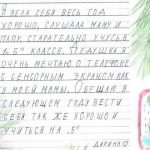 Я ВЕЛА СЕБЯ ВЕСЬ ГОД
ХОРОШО, СЛУШАЛА МАМУ И
ПАПУ, СТАРАТЕЛЬНО УЧУСЬ В
1 „Б" КЛАССЕ. ДЕДУШКА Я
ОЧЕНЬ МЕЧТАЮ О ТЕЛЕФОНЕ
С СЕНСОРНЫМ ЭКРАНОМ КАК
У МОЕЙ МАМЫ. ОБЕЩАЮ В
СЛЕДУЮЩЕМ ГОДУ ВЕСТИ
СЕБЯ ТАК ЖЕ ХОРОШО И
УЧИТЬСЯ НА „5"
ДАРИНА